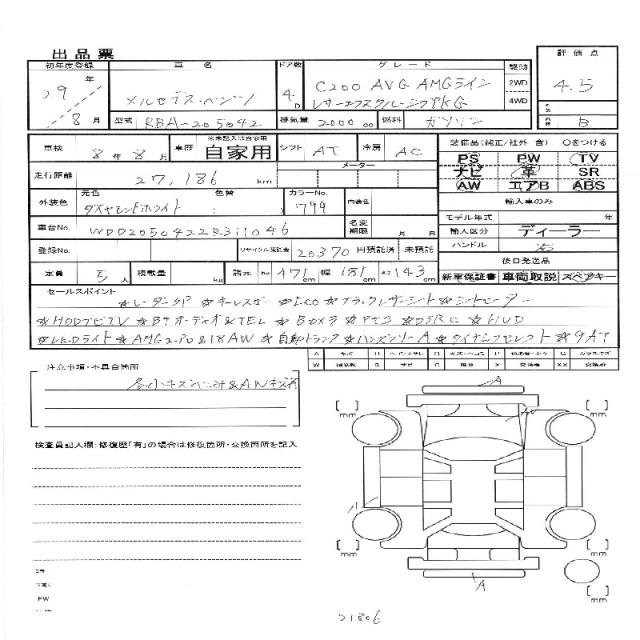 出品票
初年度登録 車名 ドア数 グレード 駆動 評価点
29年 8月
メルセデス・ベンツ
4D
C200 AVG AMGライン
レザーエクスクルーシブPKG
2WD
4WD
4.5
B
型式 RBA-205042 排気量 2000 cc 燃料 ガソリン
車検 8年8月 車歴 ※未記入は自家用 自家用 シフト AT 冷房 AC
走行距離 27,186 km メーター
外装色 元色 ダイヤモンドホワイト 色替 カラーNo. 799 内装色
車台No. WDD2050422R311046 名変期限 月 日
登録No. リサイクル預託金 20370 円預託済 未預託
定員 5人 積載量 kg 諸元 長 471 cm 幅 181 cm 高 143 cm
装備品(純正/社外 含) ○をつける
PS PW TV
ナビ 革 SR
AW エアB ABS
輸入車のみ
モデル年式 年
輸入区分 ディーラー
ハンドル 右
後日発送品
新車保証書 車両取説 スペアキー
セールスポイント
☆レーダーSP ☆キーレスゴー ☆ECO ☆ブラックレザーシート ☆シートヒーター
☆HDDナビTV ☆BTオーディオ&TEL ☆Bカメラ ☆PTS ☆DSRC ☆HUD
☆LEDライト ☆AMGエアロ&18AW ☆自動トランク ☆ハンズフリーA ☆ダイナミックセレクト ☆9AT
注意事項・不具合箇所
各小キズヘコミ&AWキズ有
検査員記入欄:修復歴「有」の場合は修復箇所・交換箇所を記入
A
A
mm
mm
mm
mm
mm
21806